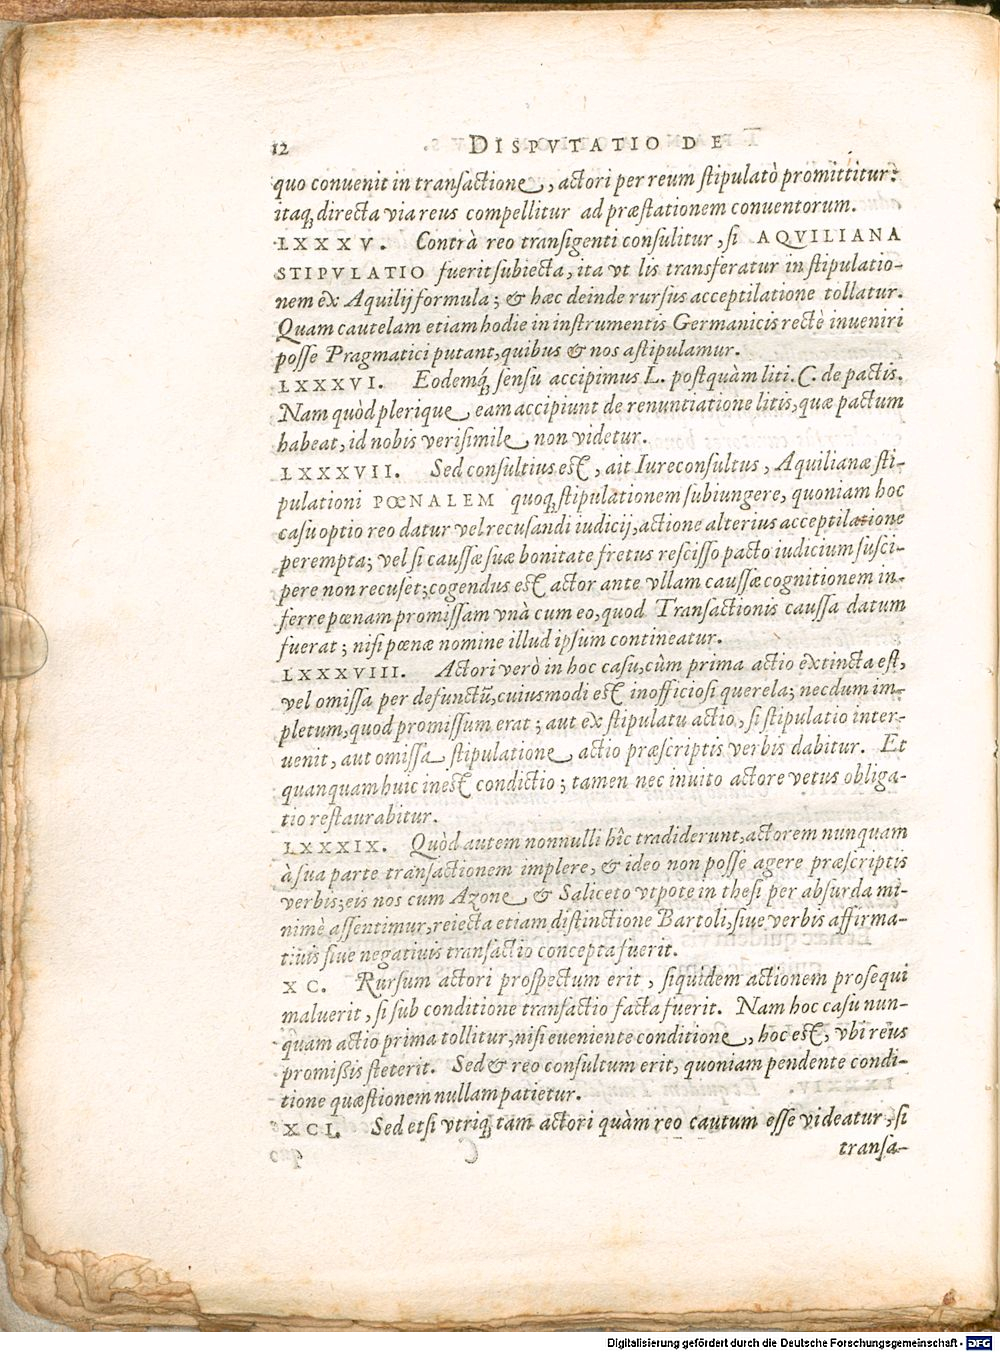 12 DISPVTATIO DE
quo convenit in transactione, actori per reum stipulatò promittitur:
itaq; directa via reus compellitur ad præstationem conventorum.
LXXXV. Contrà reo transigenti consulitur, si AQVILIANA
STIPVLATIO fuerit subiecta, ita vt lis transferatur in stipulatio-
nem ex Aquilij formula; & hæc deinde rursus acceptilatione tollatur.
Quam cautelam etiam hodie in instrumentis Germanicis rectè inveniri
posse Pragmatici putant, quibus & nos astipulamur.
LXXXVI. Eodemq́; sensu accipimus L. postquàm liti. C. de pactis.
Nam quòd plerique eam accipiunt de renuntiatione litis, quæ pactum
habeat, id nobis verisimile non videtur.
LXXXVII. Sed consultius est, ait Iureconsultus, Aquilianæ sti-
pulationi POENALEM quoq; stipulationem subiungere, quoniam hoc
casu optio reo datur vel recusandi iudicij, actione alterius acceptilatione
perempta; vel si caussæ suæ bonitate fretus rescisso pacto iudicium susci-
pere non recuset; cogendus est actor ante vllam caussæ cognitionem in-
ferre pœnam promissam vnà cum eo, quod Transactionis caussa datum
fuerat; nisi pœnæ nomine illud ipsum contineatur.
LXXXVIII. Actori verò in hoc casu, cùm prima actio extincta est,
vel omissa per defunctũ, cuiusmodi est inofficiosi querela; necdum im-
pletum, quod promissum erat; aut ex stipulatu actio, si stipulatio inter-
uenit, aut omissa stipulatione actio præscriptis verbis dabitur. Et
quanquam huic inest condictio; tamen nec inuito actore vetus obliga-
tio restaurabitur.
LXXXIX. Quòd autem nonnulli hîc tradiderunt, actorem nunquam
à sua parte transactionem implere, & ideo non posse agere præscriptis
verbis; eis nos cum Azone & Saliceto vtpote in thesi per absurda mi-
nimè assentimur, reiecta etiam distinctione Bartoli, siue verbis affirma-
tiuis siue negatiuis transactio concepta fuerit.
XC. Rursum actori prospectum erit, siquidem actionem prosequi
maluerit, si sub conditione transactio facta fuerit. Nam hoc casu nun-
quam actio prima tollitur, nisi eveniente conditione, hoc est, vbi reus
promißis steterit. Sed & reo consultum erit, quoniam pendente condi-
tione quæstionem nullam patietur.
XCI. Sed etsi vtriq; tam actori quàm reo cautum esse videatur, si
transa-
Digitalisierung gefördert durch die Deutsche Forschungsgemeinschaft - DFG